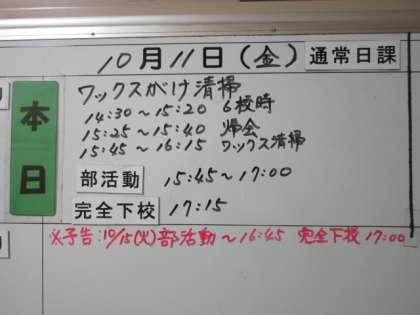 10月11日(金) 通常日課
本日
ワックスがけ清掃
14:30〜15:20 6校時
15:25〜15:40 帰会
15:45〜16:15 ワックス清掃
部活動 15:45〜17:00
完全下校 17:15
※予告:10/15(火)部活動〜16:45 完全下校 17:00